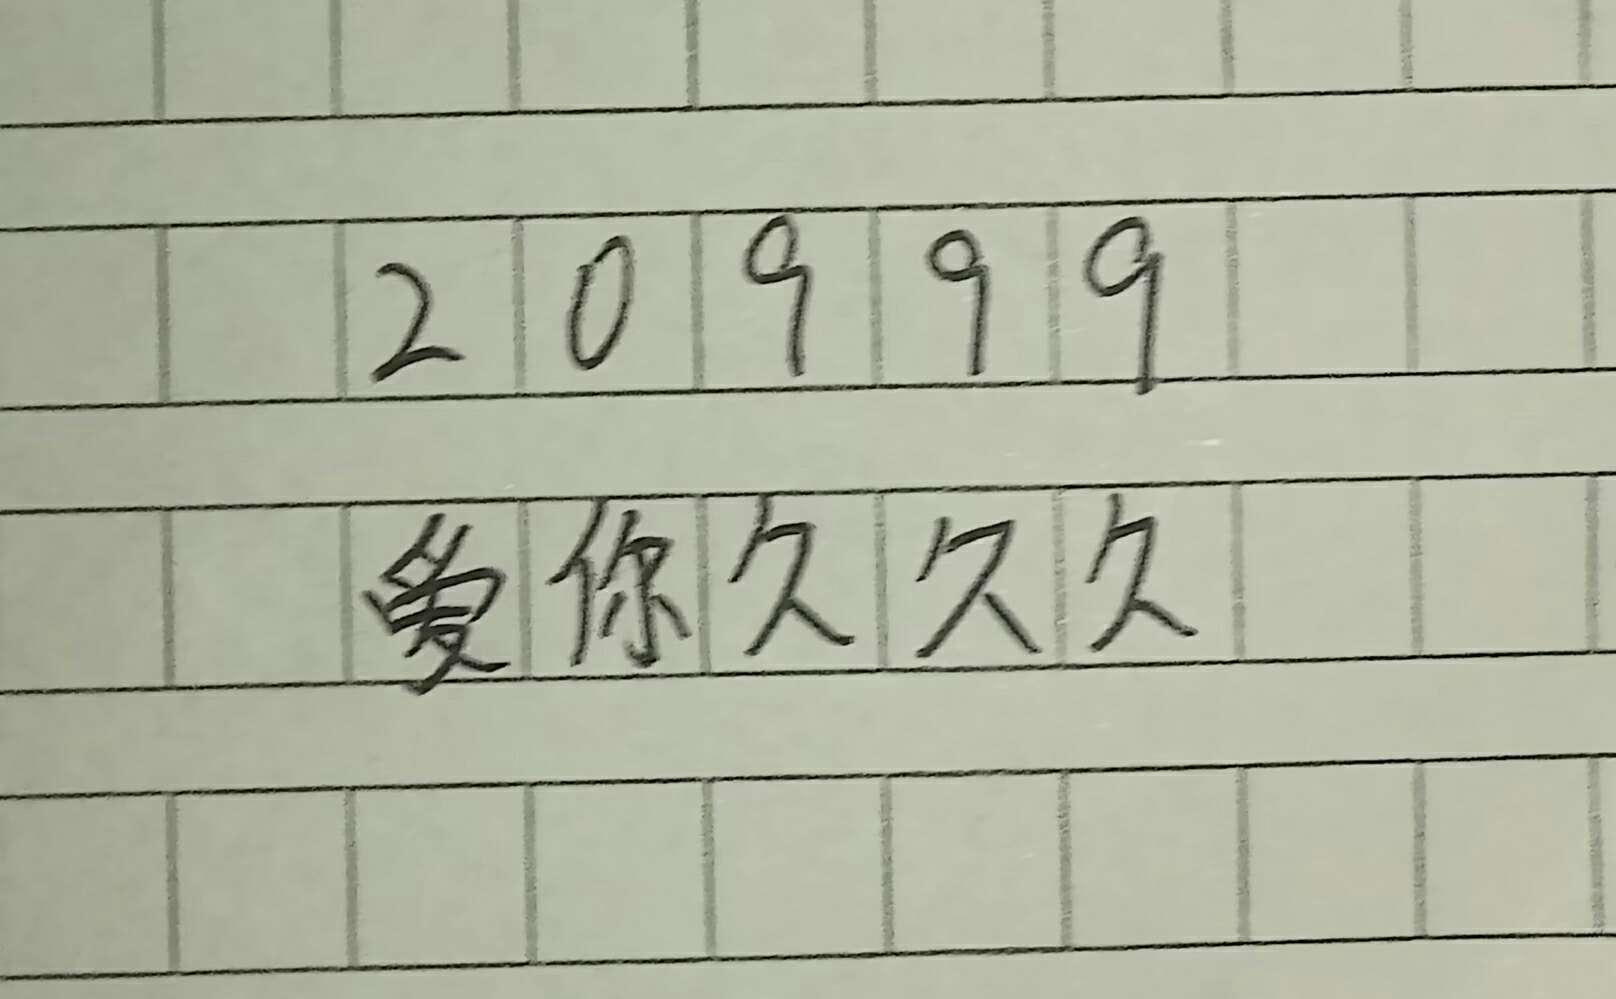 20999
爱你久久久